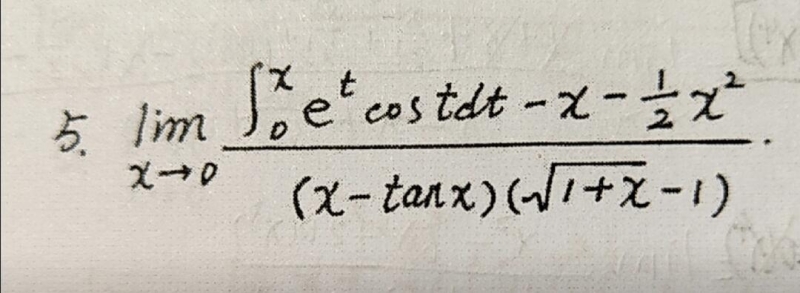 5. lim_{x→0} \frac{∫_0^x e^t cos t dt - x - \frac{1}{2} x^2}{(x - tan x)(\sqrt{1+x} - 1)}.